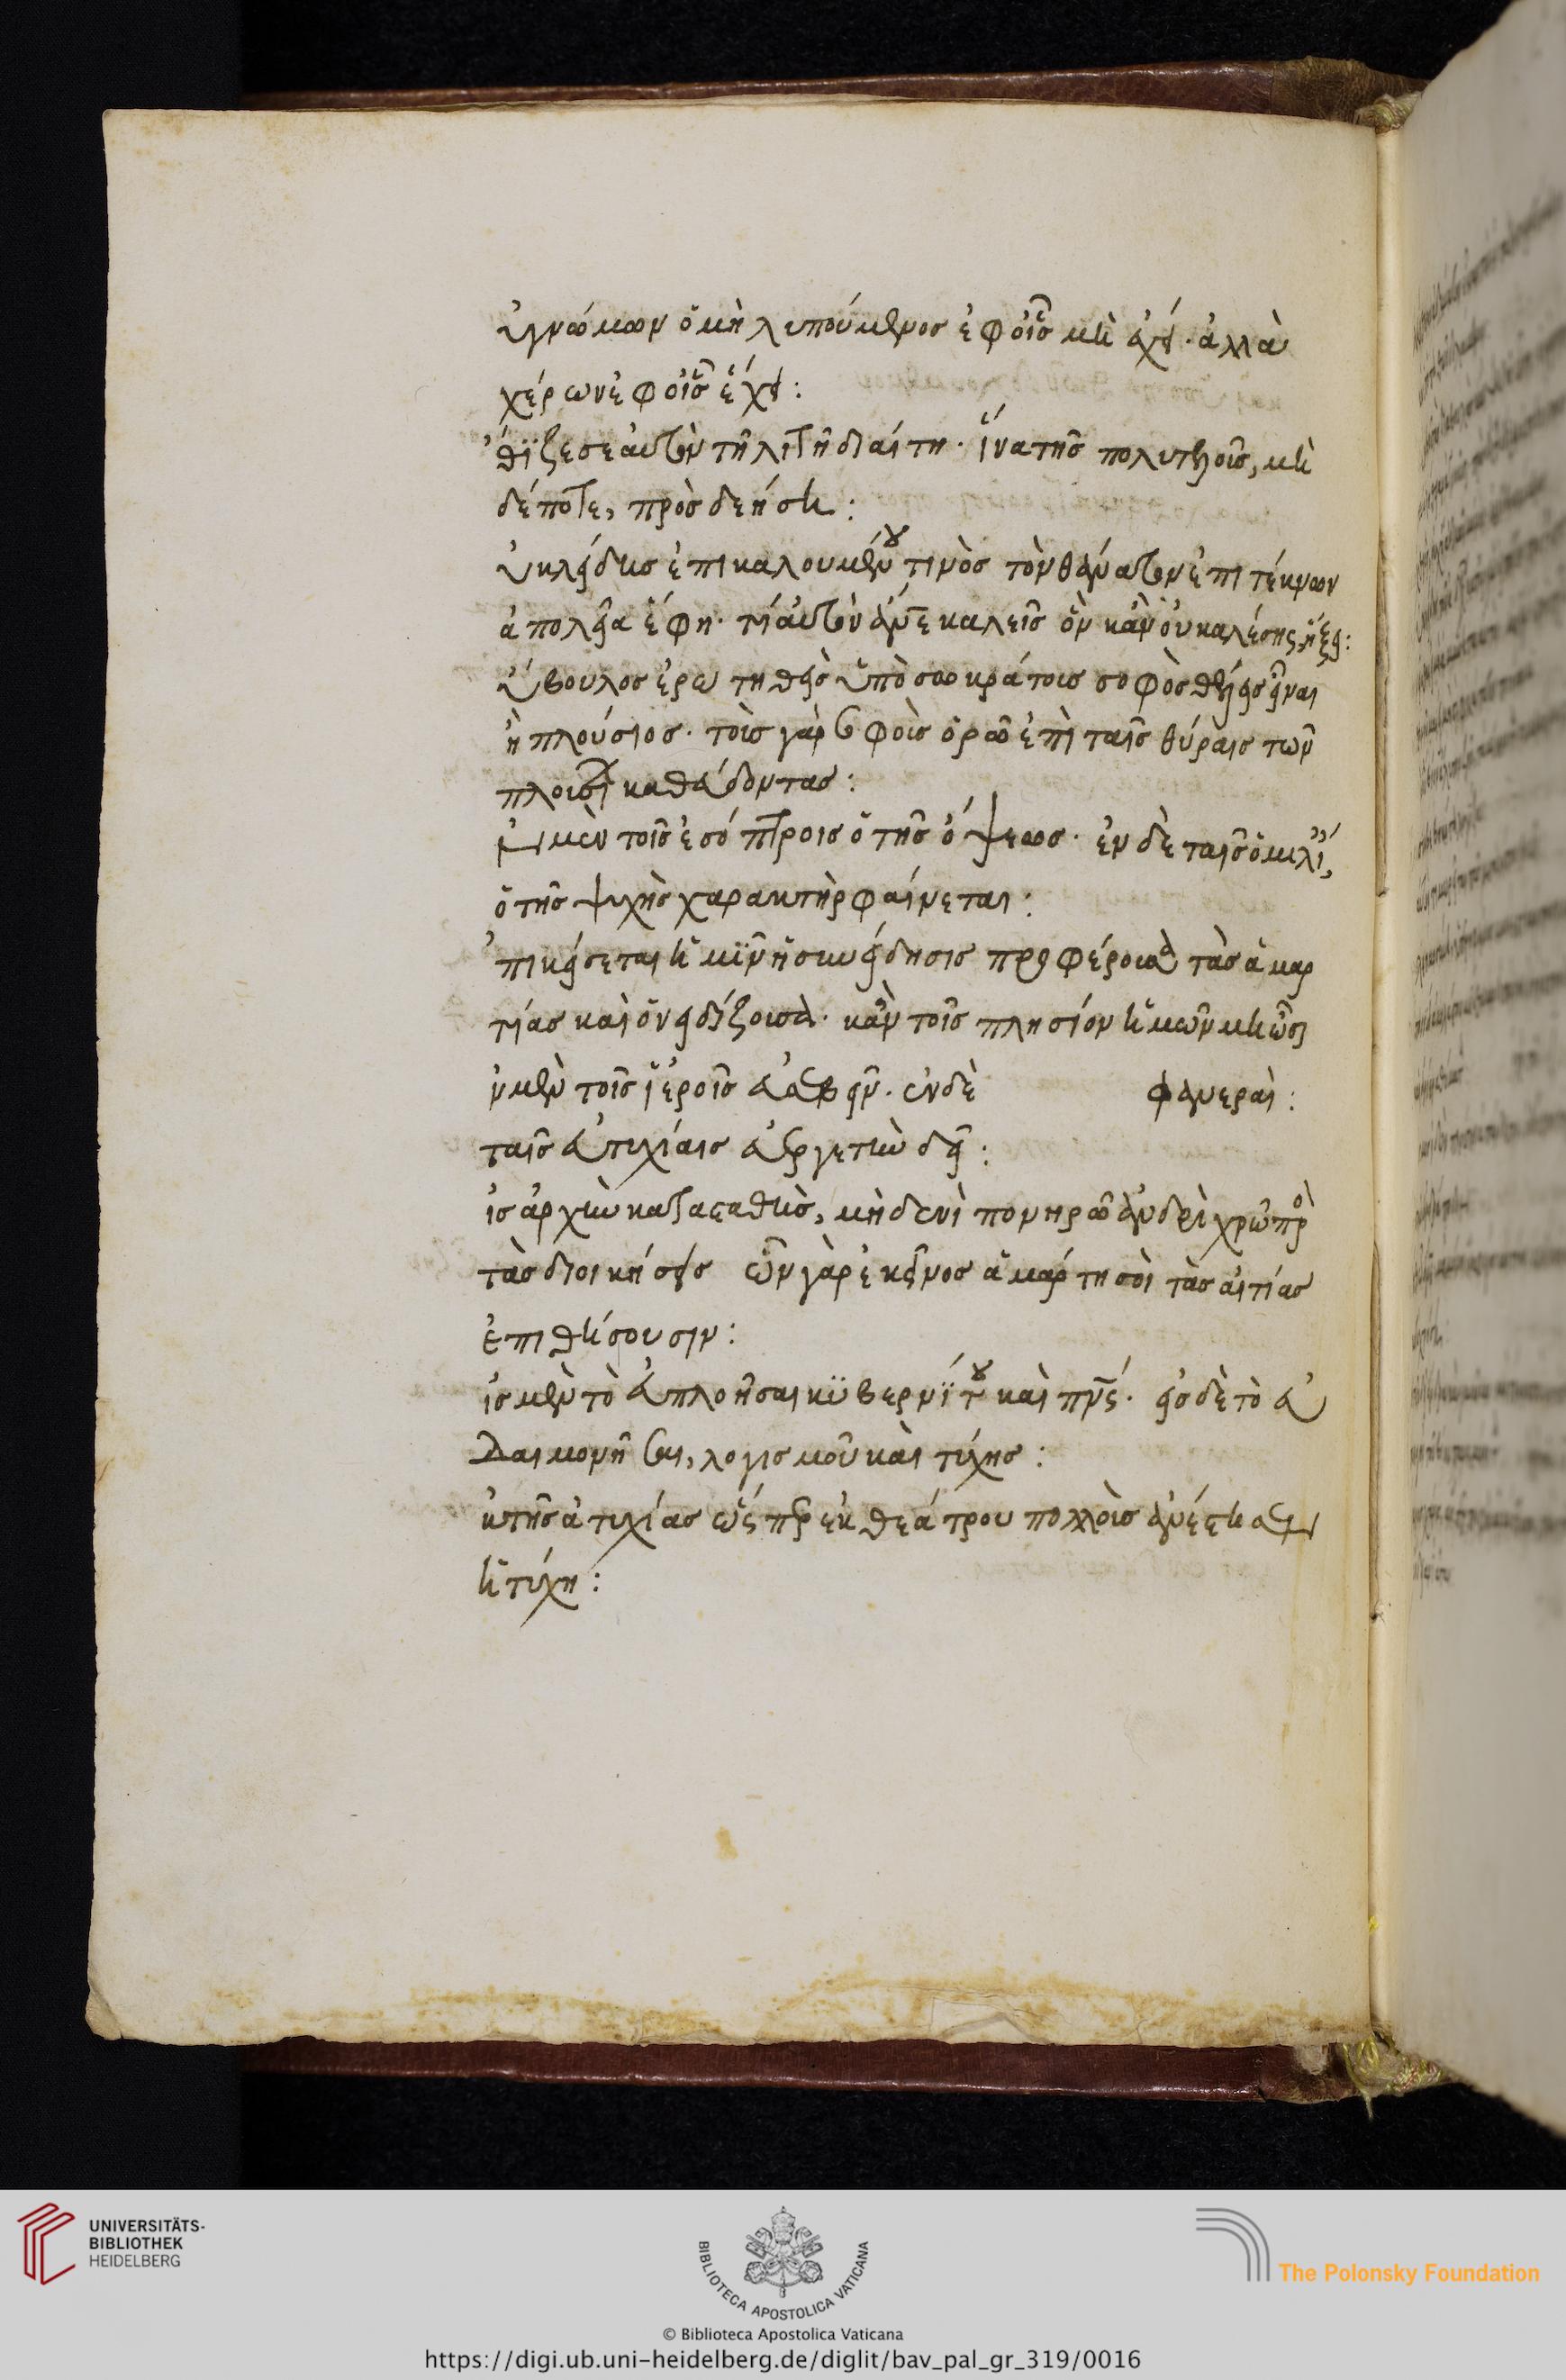 ὐγνώμων ὁ μὴ λυπούμενος ἐφ οἷς μὴ ἔχει. ἀλλὰ
χέρων ἐφ οἷς ἔχει:
θιζε σεαυτὸν τῆ λιτῆ διαίτη. ἵνα τῆς πολυτελοῦς, μη
δέποτε, προσδεήση:
ὐκλείδης ἐπικαλουμένου τινὸς τὸν θάνατον ἐπι τέκνων
ἀπολεία ἔφη. τί αὐτὸν ἄνθρωπε καλεῖς ὃν κἂν οὐ καλέσης, ἥξει:
ὔβουλος ἐρωτηθεὶς ὑπὸ σωκράτους σοφὸς θέλεις εἶναι
ἢ πλούσιος. τοὺς γὰρ σοφοὺς ὁρῶ ἐπὶ ταῖς θύραις τῶν
πλουσίων καθεύδοντας:
ν μὲν τοῖς ἐσόπτροις ὁ τῆς ὄψεως. ἐν δὲ ταῖς ὁμιλίαις,
ὁ τῆς ψυχῆς χαρακτὴρ φαίνεται:
πικείσεται ἡμῖν ἡ συνείδησις προφέρουσα τὰς ἁμαρ
τίας καὶ ὀνειδίζουσα. κἂν τοῖς πλησίον ἡμῶν μὴ ὦσι
ν μὲν τοῖς ἱεροῖς εὐσεβεῖν. ἐν δὲ φανεραὶ:
ταῖς εὐτυχίαις εὐεργετεῖν δεῖ:
ἰς ἀρχὴν κατασταθεὶς, μηδενὶ πονηρῶ ἀνδρὶ χρῶ πρὸς
τὰς διοικήσεις ὧν γὰρ ἐκεῖνος ἁμάρτη σοὶ τὰς αἰτίας
ἐπιθήσουσιν:
ἰς μὲν τὸ εὐπλοῆσαι κυβερνίτου καὶ πνεύματος. εἰς δὲ τὸ εὐ
δαιμονῆσαι, λογισμοῦ καὶ τύχης:
κ τῆς ἀτυχίας ὥσπερ ἐκ θεάτρου πολλοὺς ἀνέστησεν
ἡ τύχη:
UNIVERSITÄTS-
BIBLIOTHEK
HEIDELBERG
BIBLIOTECA APOSTOLICA VATICANA
The Polonsky Foundation
© Biblioteca Apostolica Vaticana
https://digi.ub.uni-heidelberg.de/diglit/bav_pal_gr_319/0016